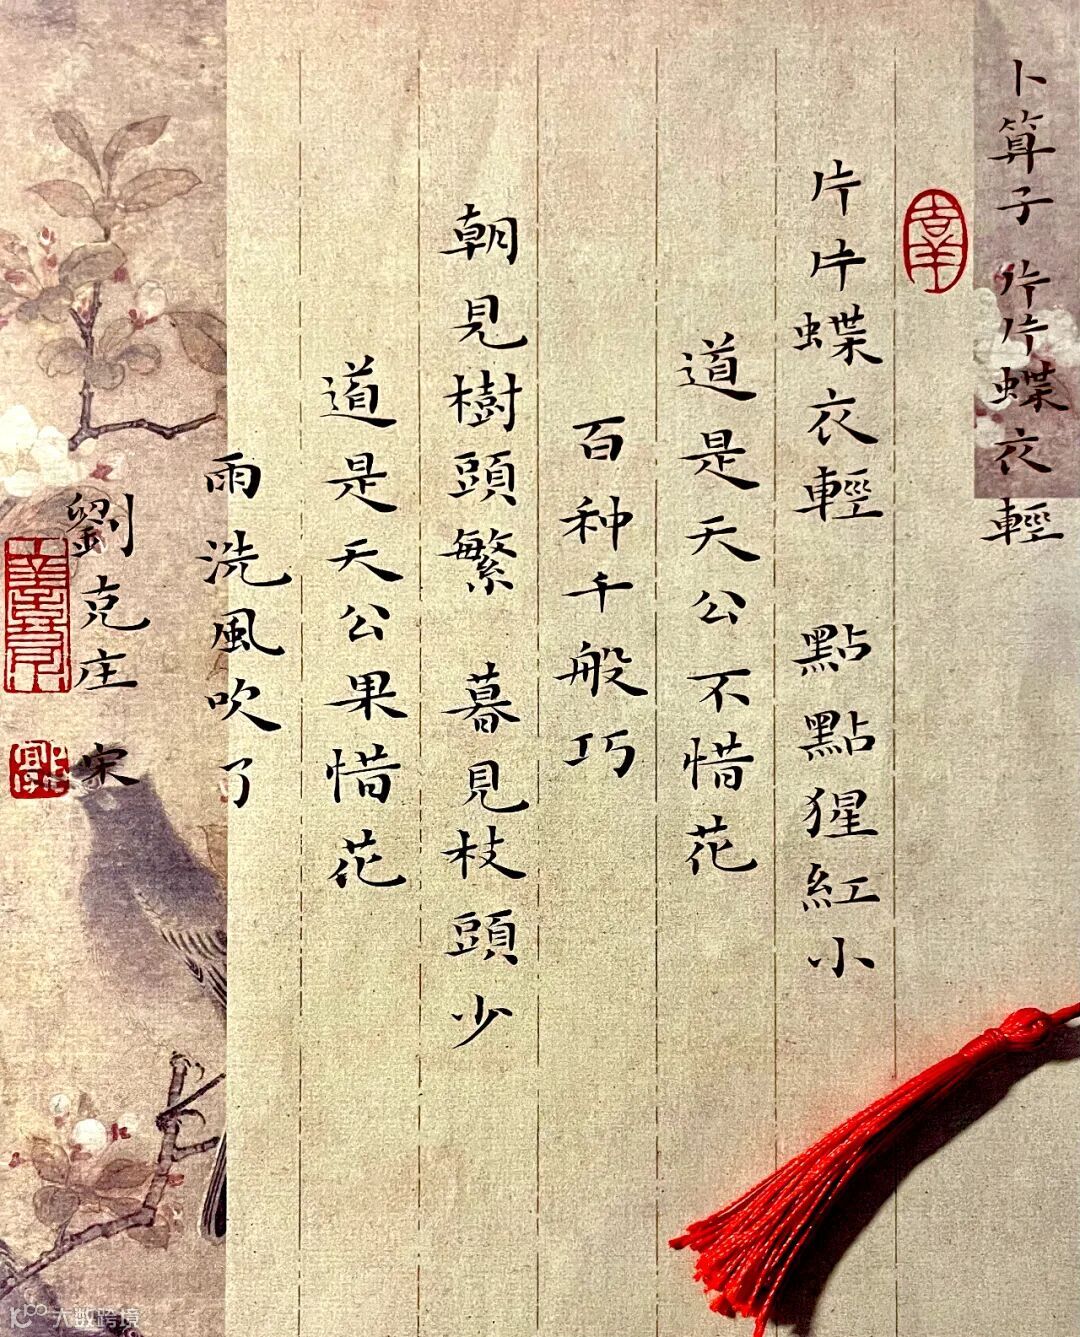 卜算子 片片蝶衣輕
片片蝶衣輕 點點猩紅小
道是天公不惜花
百种千般巧
朝見樹頭繁 暮見枝頭少
道是天公果惜花
雨洗風吹了
劉克庄 宋
大数跨境